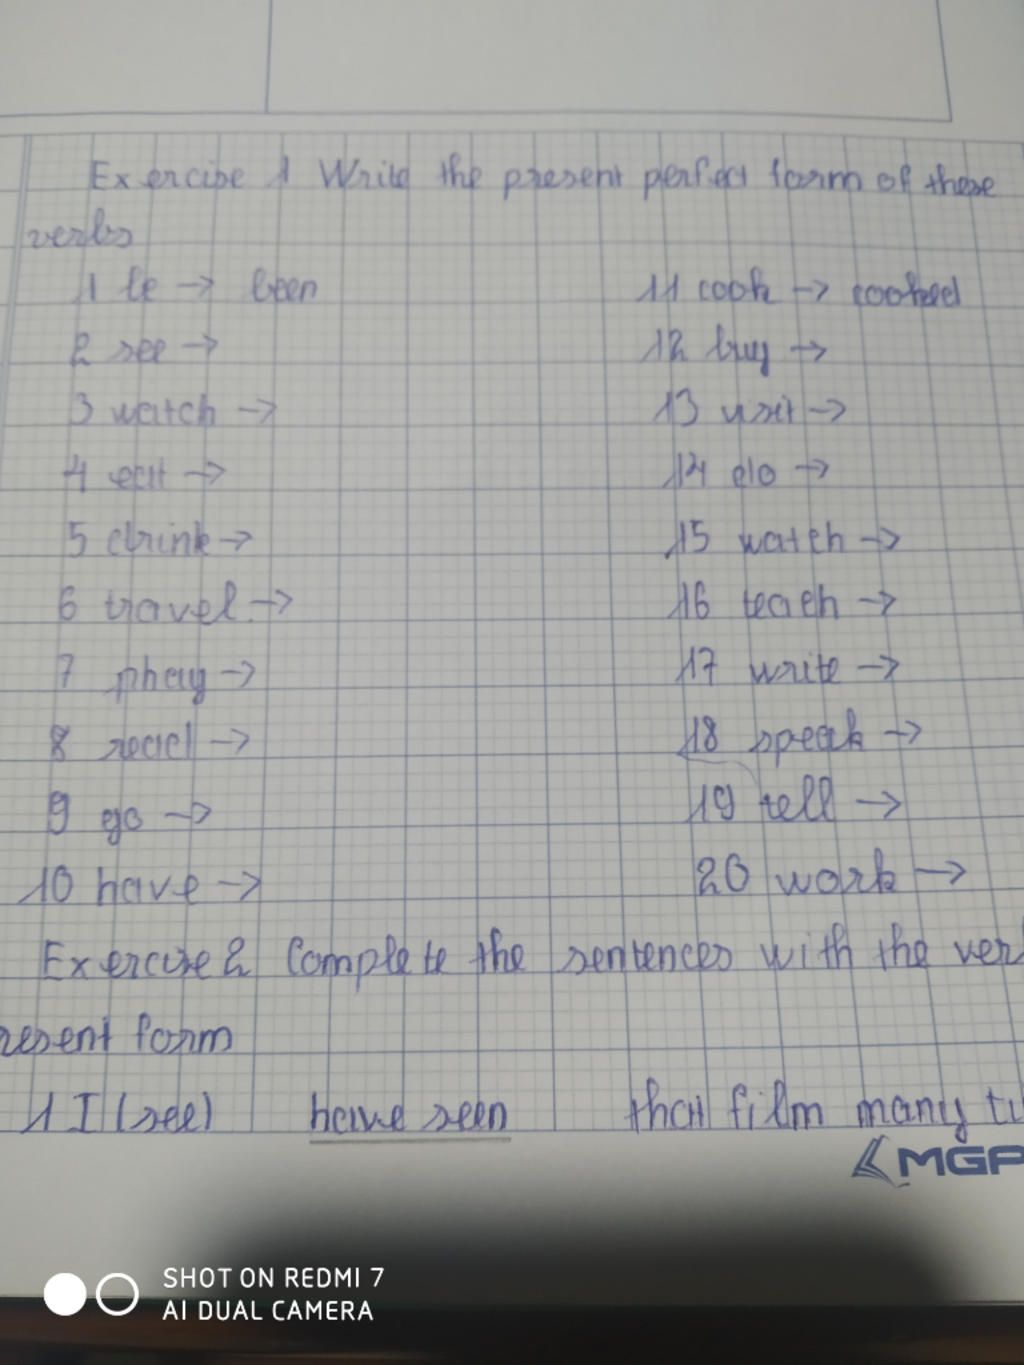 Exercise 1 Write the present perfect form of these
verbs
1 be → been 11 cook → cooked
2 see → 12 buy →
3 watch → 13 visit →
4 eat → 14 do →
5 drink → 15 watch →
6 travel → 16 teach →
7 play → 17 write →
8 read → 18 speak →
9 go → 19 tell →
10 have → 20 work →
Exercise 2 Complete the sentences with the ver
resent form
1 I (see) have seen that film many ti
MGP
SHOT ON REDMI 7
AI DUAL CAMERA